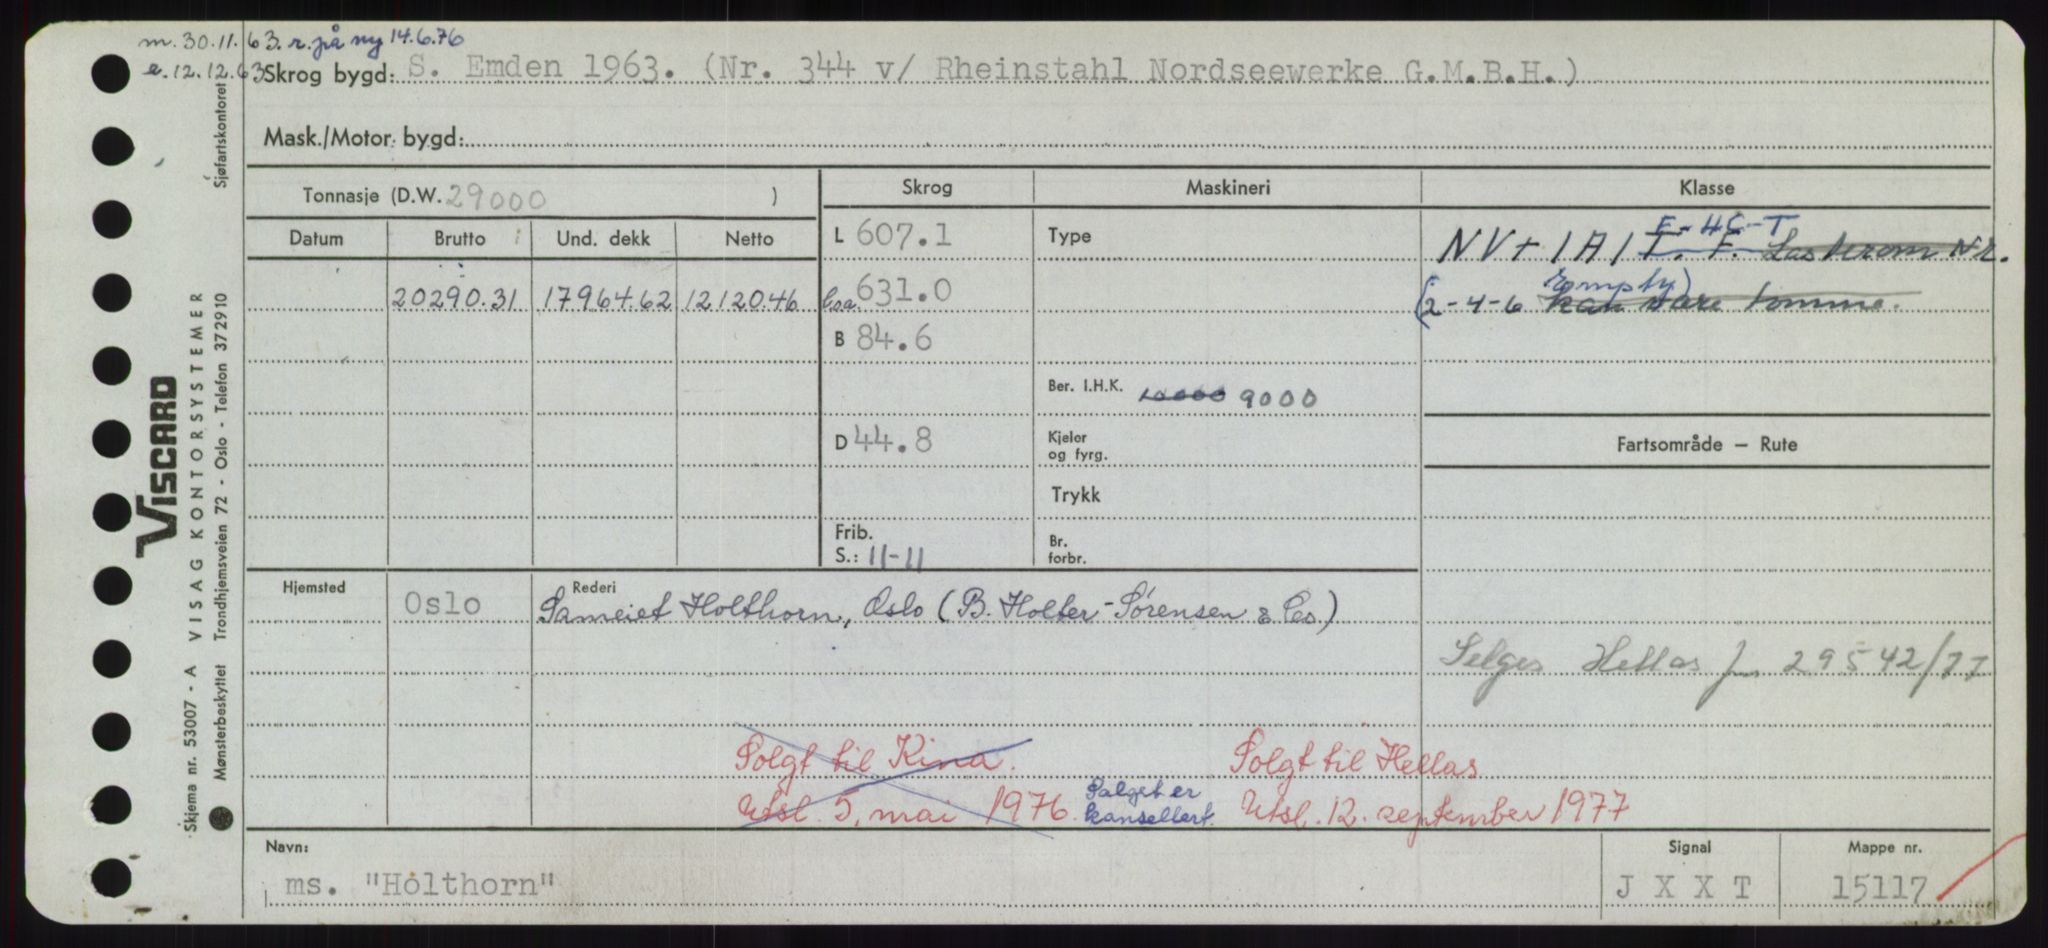 m. 30.11.63. r. på ny 14.6.76
e. 12.12.63
Skrog bygd: S. Emden 1963. (Nr. 344 v/ Rheinstahl Nordseewerke G.M.B.H.)
Mask./Motor bygd:
Tonnasje (D.W. 29000 )
Skrog Maskineri Klasse
Datum Brutto Und. dekk Netto
20290.31 17964.62 12120.46
L 607.1
Loa. 631.0
B 84.6
D 44.8
Frib.
S.: 11-11
Type
Ber. I.H.K. 10000 9000
Kjeler
og fyrg.
Trykk
Br.
forbr.
F-HC-T
NV+1A1 T. F. Lasterom Nr.
r empty)
(2-4-6 kan være tomme.
Fartsområde — Rute
Hjemsted Oslo
Rederi
Sameiet Holthorn, Oslo (B. Holter-Sørensen & Co)
Selges Hellas 29542/77
Solgt til Kina. Solgt til Hellas
Utsl. 5. mai 1976. Salget er
kansellert. Utsl. 12. september 1977
Navn: Signal Mappe nr.
ms. "Holthorn" J X X T 15117
Sjøfartskontoret
VISCARD
VISAG KONTORSYSTEMER
Skjema nr. 53007 - A
Mønsterbeskyttet Trondhjemsveien 72 - Oslo - Telefon 372910